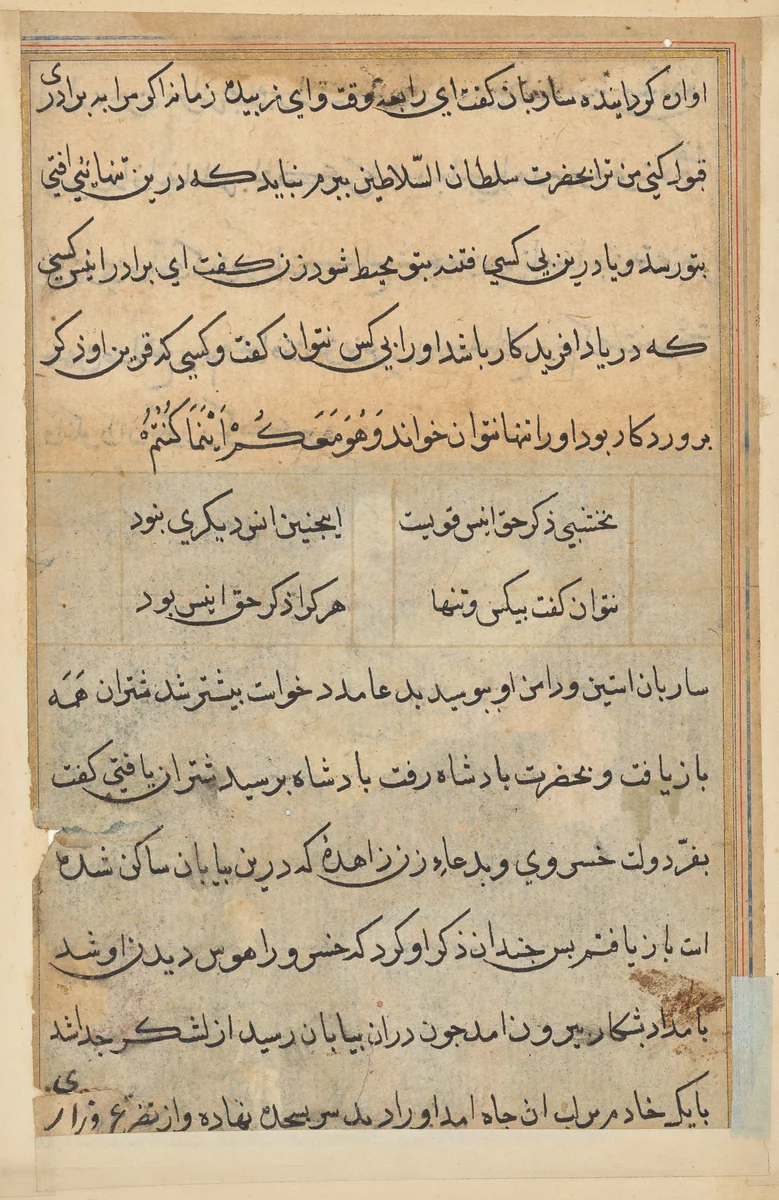 اواره کرداینده ساربان کفت ای رابعه وقت و ای زبیده زمانه اکر مرا به برادری
قبول کنی من ترا بحضرت سلطان السّلاطین ببرم نباید که درین تنهائی افتی
بتو رسد و یا درین بی کسی فتنه بتو محیط شود زن کفت ای برادر انیس کسی
که در یاد افریدکار باشد او را بی کس نتوان کفت و کسی که قرین او ذکر
پروردکار بود او را تنها نتوان خواند وَهُوَ مَعَكُمْ اَيْنَمَا كُنْتُمْ
نخشبی ذکر حق انیس قویست
اینچنین انس دیکری نبود
نتوان کفت بیکس و تنها
هر کرا ذکر حق انیس بود
ساربان استین و دامن او ببوسید بدعا مدد خواست بیشتر شد شتران همه
باز یافت و بحضرت بادشاه رفت بادشاه برسید شتران یافتی کفت
بفرّ دولت خسروی و بدعاء زن زاهدهٔ که درین بیابان ساکن شده
است باز یافتم بس جندان ذکر او کرد که خسرو را هوس دیدن او شد
بامداد بشکار بیرون امد جون دران بیابان رسید از لشکر جدا شد
با یک خادم بر لب ان جاه امد او را دید سر بسجده نهاده و از تضرع و زاری